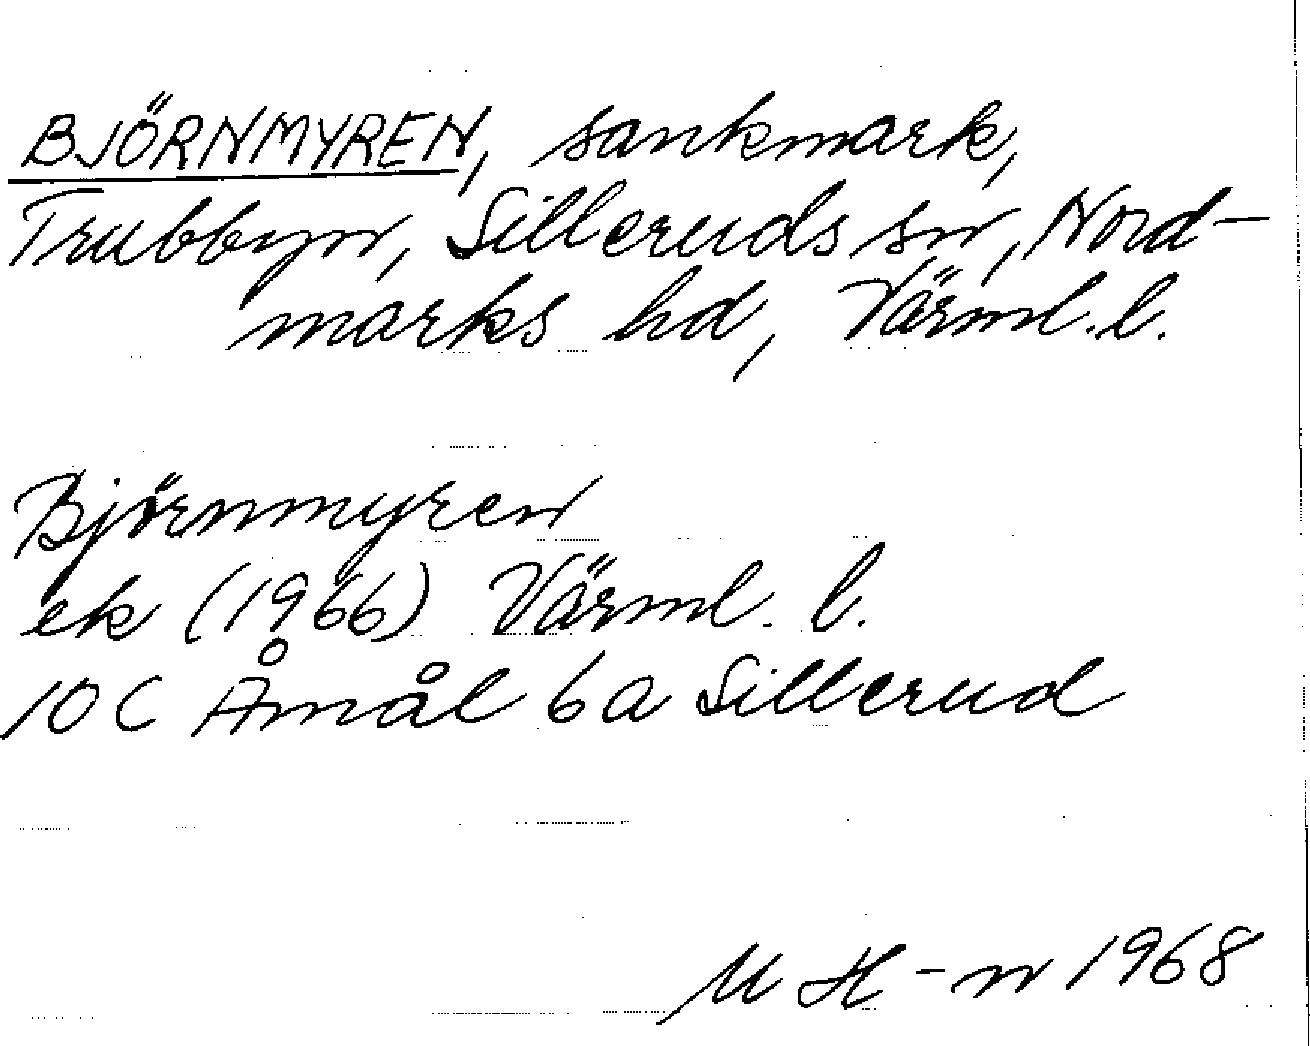 BJÖRNMYREN, sankmark,
Trubbyn, Silleruds sn, Nord-
marks hd, Värml. l.
Björnmyren
ek (1966) Värml. l.
10 C Åmål 6a Sillerud
M H-n 1968